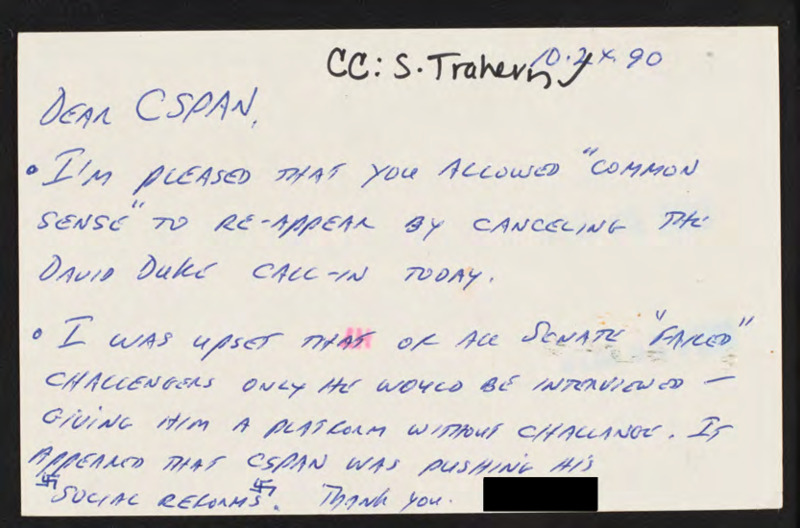 CC: S. Traherny 10.24.90
DEAR CSPAN,
• I'M PLEASED THAT YOU ALLOWED "COMMON
SENSE" TO RE-APPEAR BY CANCELING THE
DAVID DUKE CALL-IN TODAY.
• I WAS UPSET THAT OF ALL SENATE "FAILED"
CHALLENGERS ONLY HE WOULD BE INTERVIEWED —
GIVING HIM A PLATFORM WITHOUT CHALLANGE. IT
APPEARED THAT CSPAN WAS PUSHING HIS
卐SOCIAL REFORMS卐. THANK YOU.